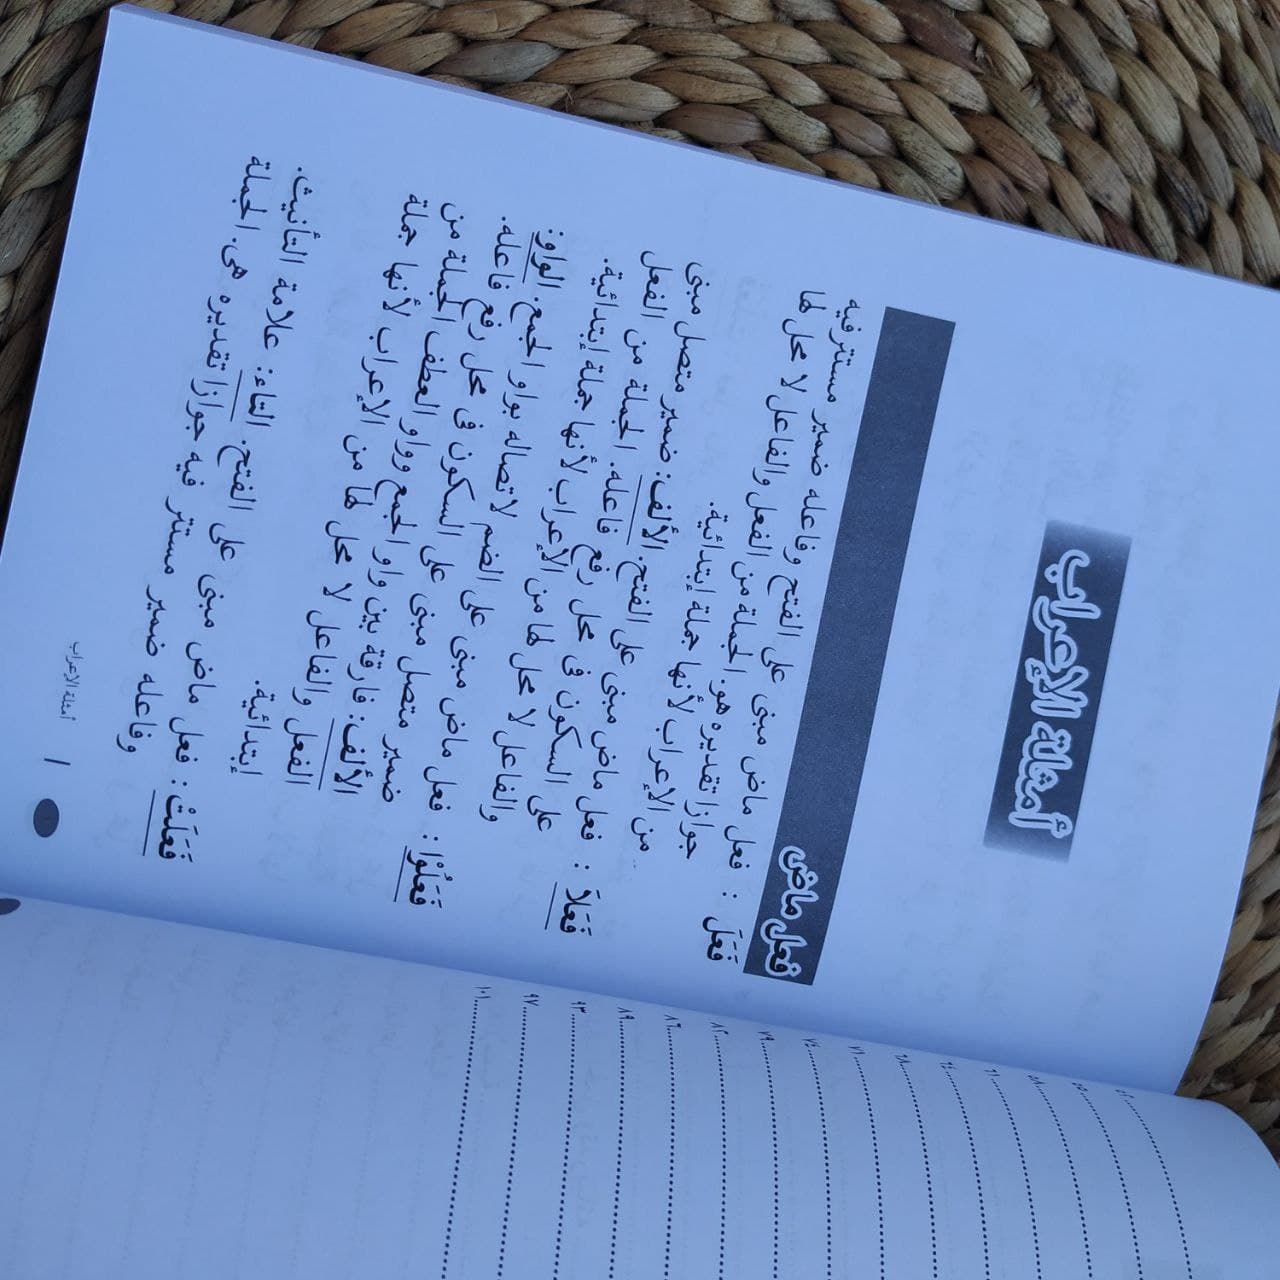 أمثلة الإعراب
فعل ماض
فَعَلَ : فعل ماض مبنى على الفتح وفاعله ضمير مسترفيه
جوازا تقديره هو. الجملة من الفعل والفاعل لا محل لها
من الإعراب لأنها جملة إبتدائية.
فَعَلاَ : فعل ماض مبنى على الفتح. الألف: ضمير متصل مبنى
على السكون فى محل رفع فاعله. الجملة من الفعل
والفاعل لا محل لها من الإعراب لأنها جملة إبتدائية.
فَعَلُوْا : فعل ماض مبنى على الضم لاتصاله بواو الجمع. الواو:
ضمير متصل مبنى على السكون فى محل رفع فاعله.
الألف: فارقة بين واو الجمع وواو العطف الجملة من
الفعل والفاعل لا محل لها من الإعراب لأنها جملة
إبتدائية.
فَعَلَتْ : فعل ماض مبنى على الفتح. التاء: علامة التأنيث.
وفاعله ضمير مستتر فيه جوازا تقديره هى. الجملة
أمثلة الإعراب | ١
٥٥
٥٨
٦١
٦٤
٦٨
٧١
٧٤
٧٩
٨٢
٨٦
٨٩
٩٣
٩٧
١٠١